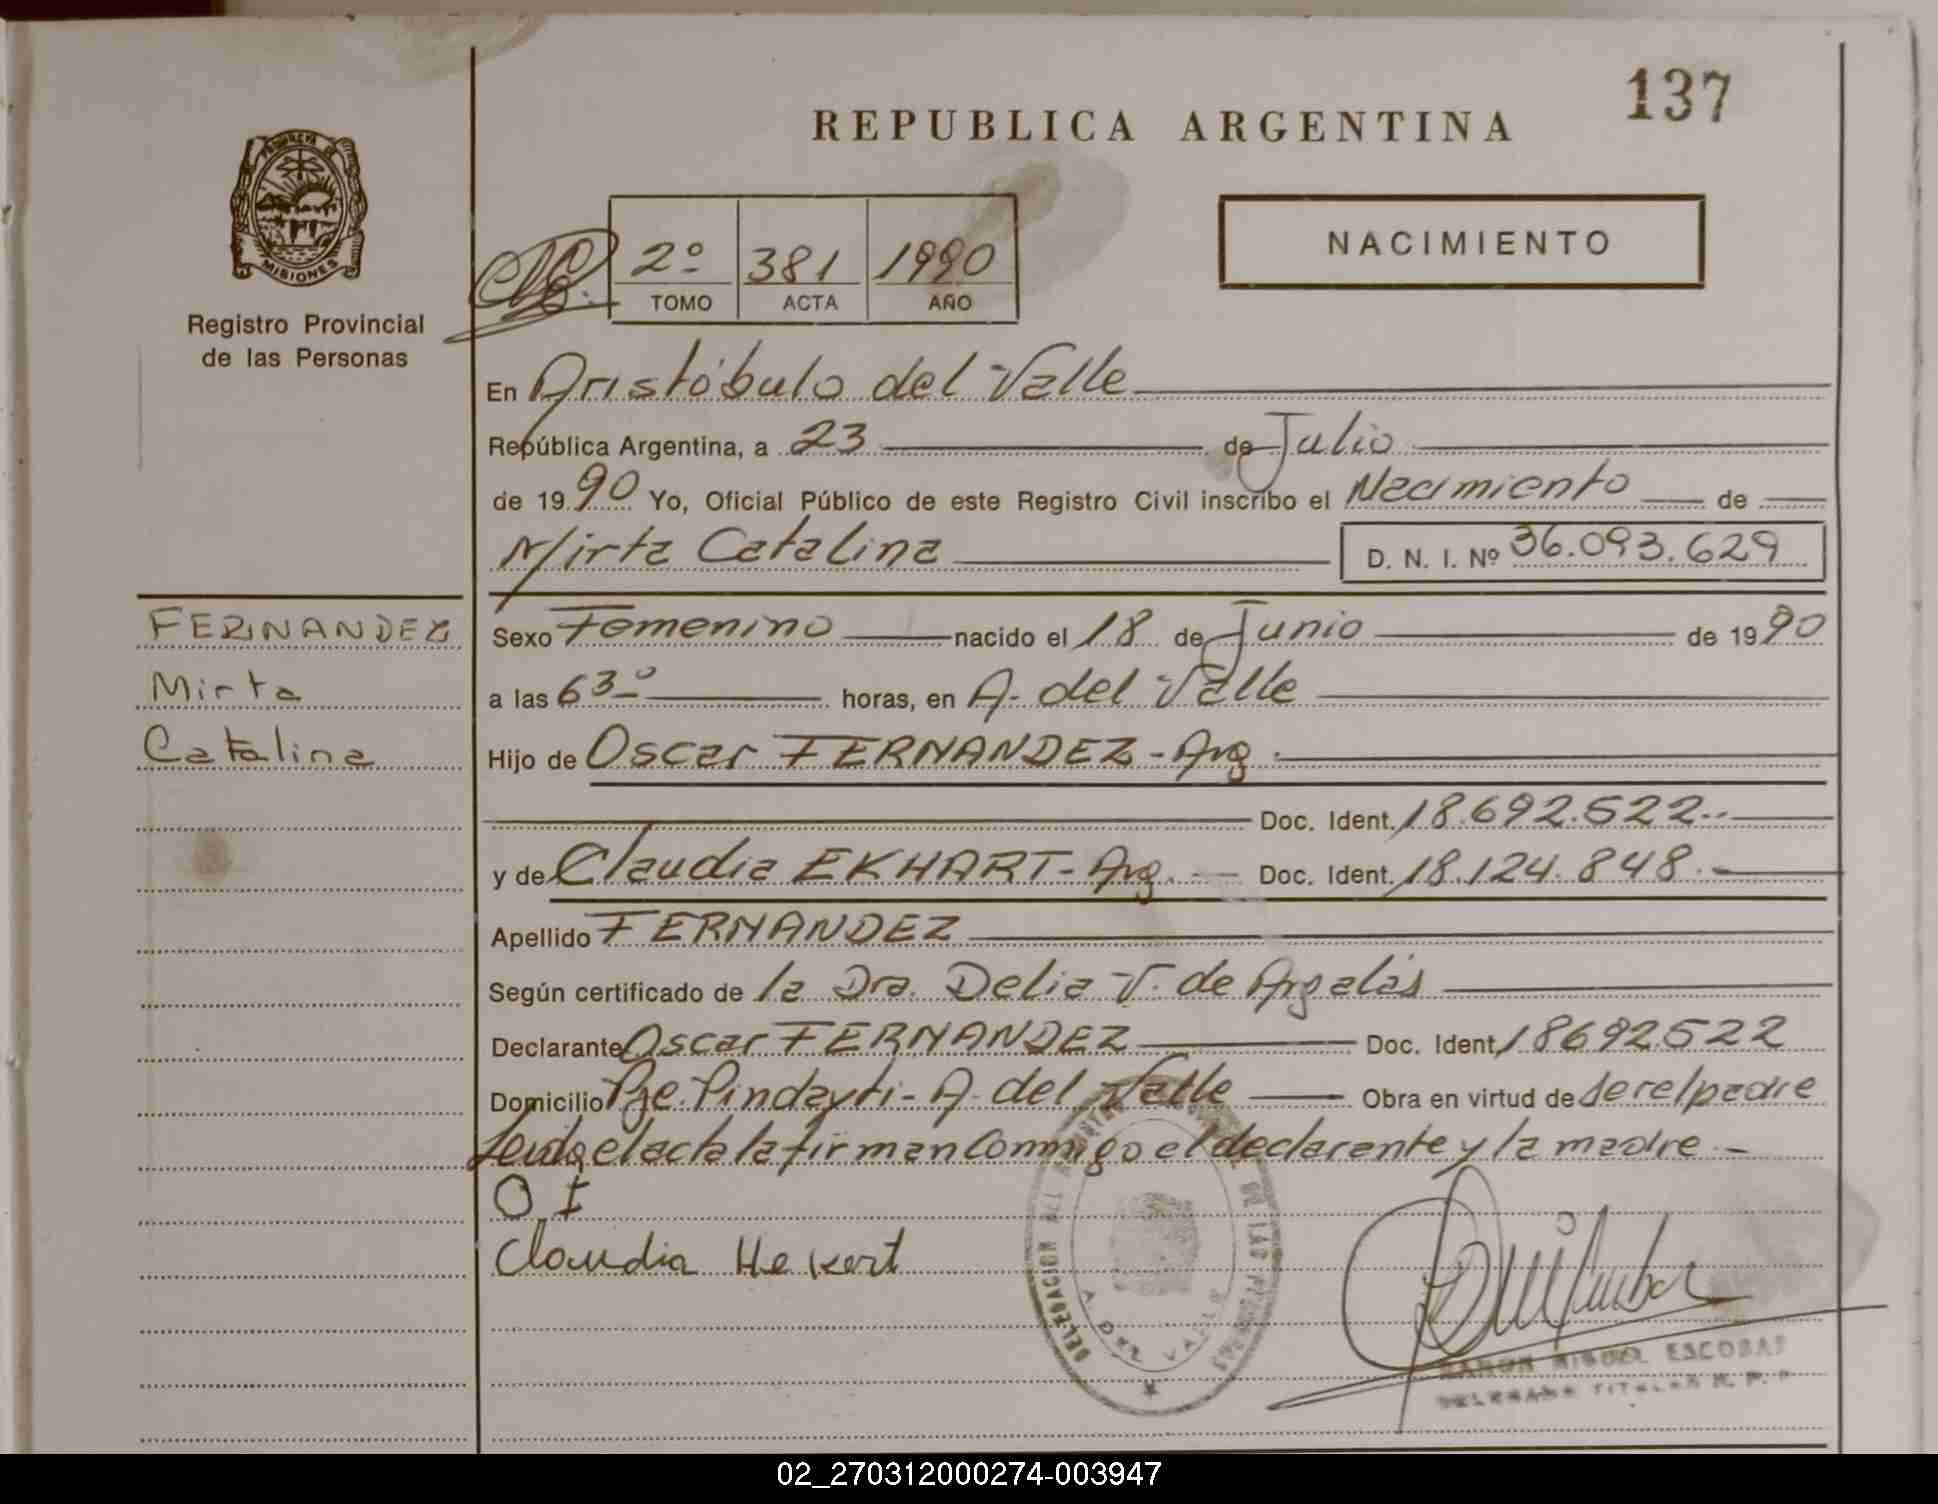 137
REPUBLICA ARGENTINA
PROVINCIA DE
MISIONES
Registro Provincial
de las Personas
2º 381 1990
TOMO ACTA AÑO
NACIMIENTO
En Aristóbulo del Valle
República Argentina, a 23 de Julio
de 1990 Yo, Oficial Público de este Registro Civil inscribo el Nacimiento de
Mirta Catalina D. N. I. Nº 36.093.629
FERNANDEZ
Mirta
Catalina
Sexo Femenino nacido el 18 de Junio de 1990
a las 63º horas, en A. del Valle
Hijo de Oscar FERNANDEZ - Arg.
Doc. Ident. 18.692.522.-
y de Claudia EKHART - Arg. Doc. Ident. 18.124.848.-
Apellido FERNANDEZ
Según certificado de la Dra. Delia V. de
Declarante Oscar FERNANDEZ Doc. Ident. 18692522
Domicilio Pje. Pindayti - A. del Valle Obra en virtud de ser el padre
Leida el acta la firman conmigo el declarante y la madre.-
O I
Claudia Hekert
DELEGACION DEL DE LAS PERSONAS
A. DEL VALLE
RAMON MIGUEL ESCOBAR
DELEGADO TITULAR R. P. P.
02_270312000274-003947